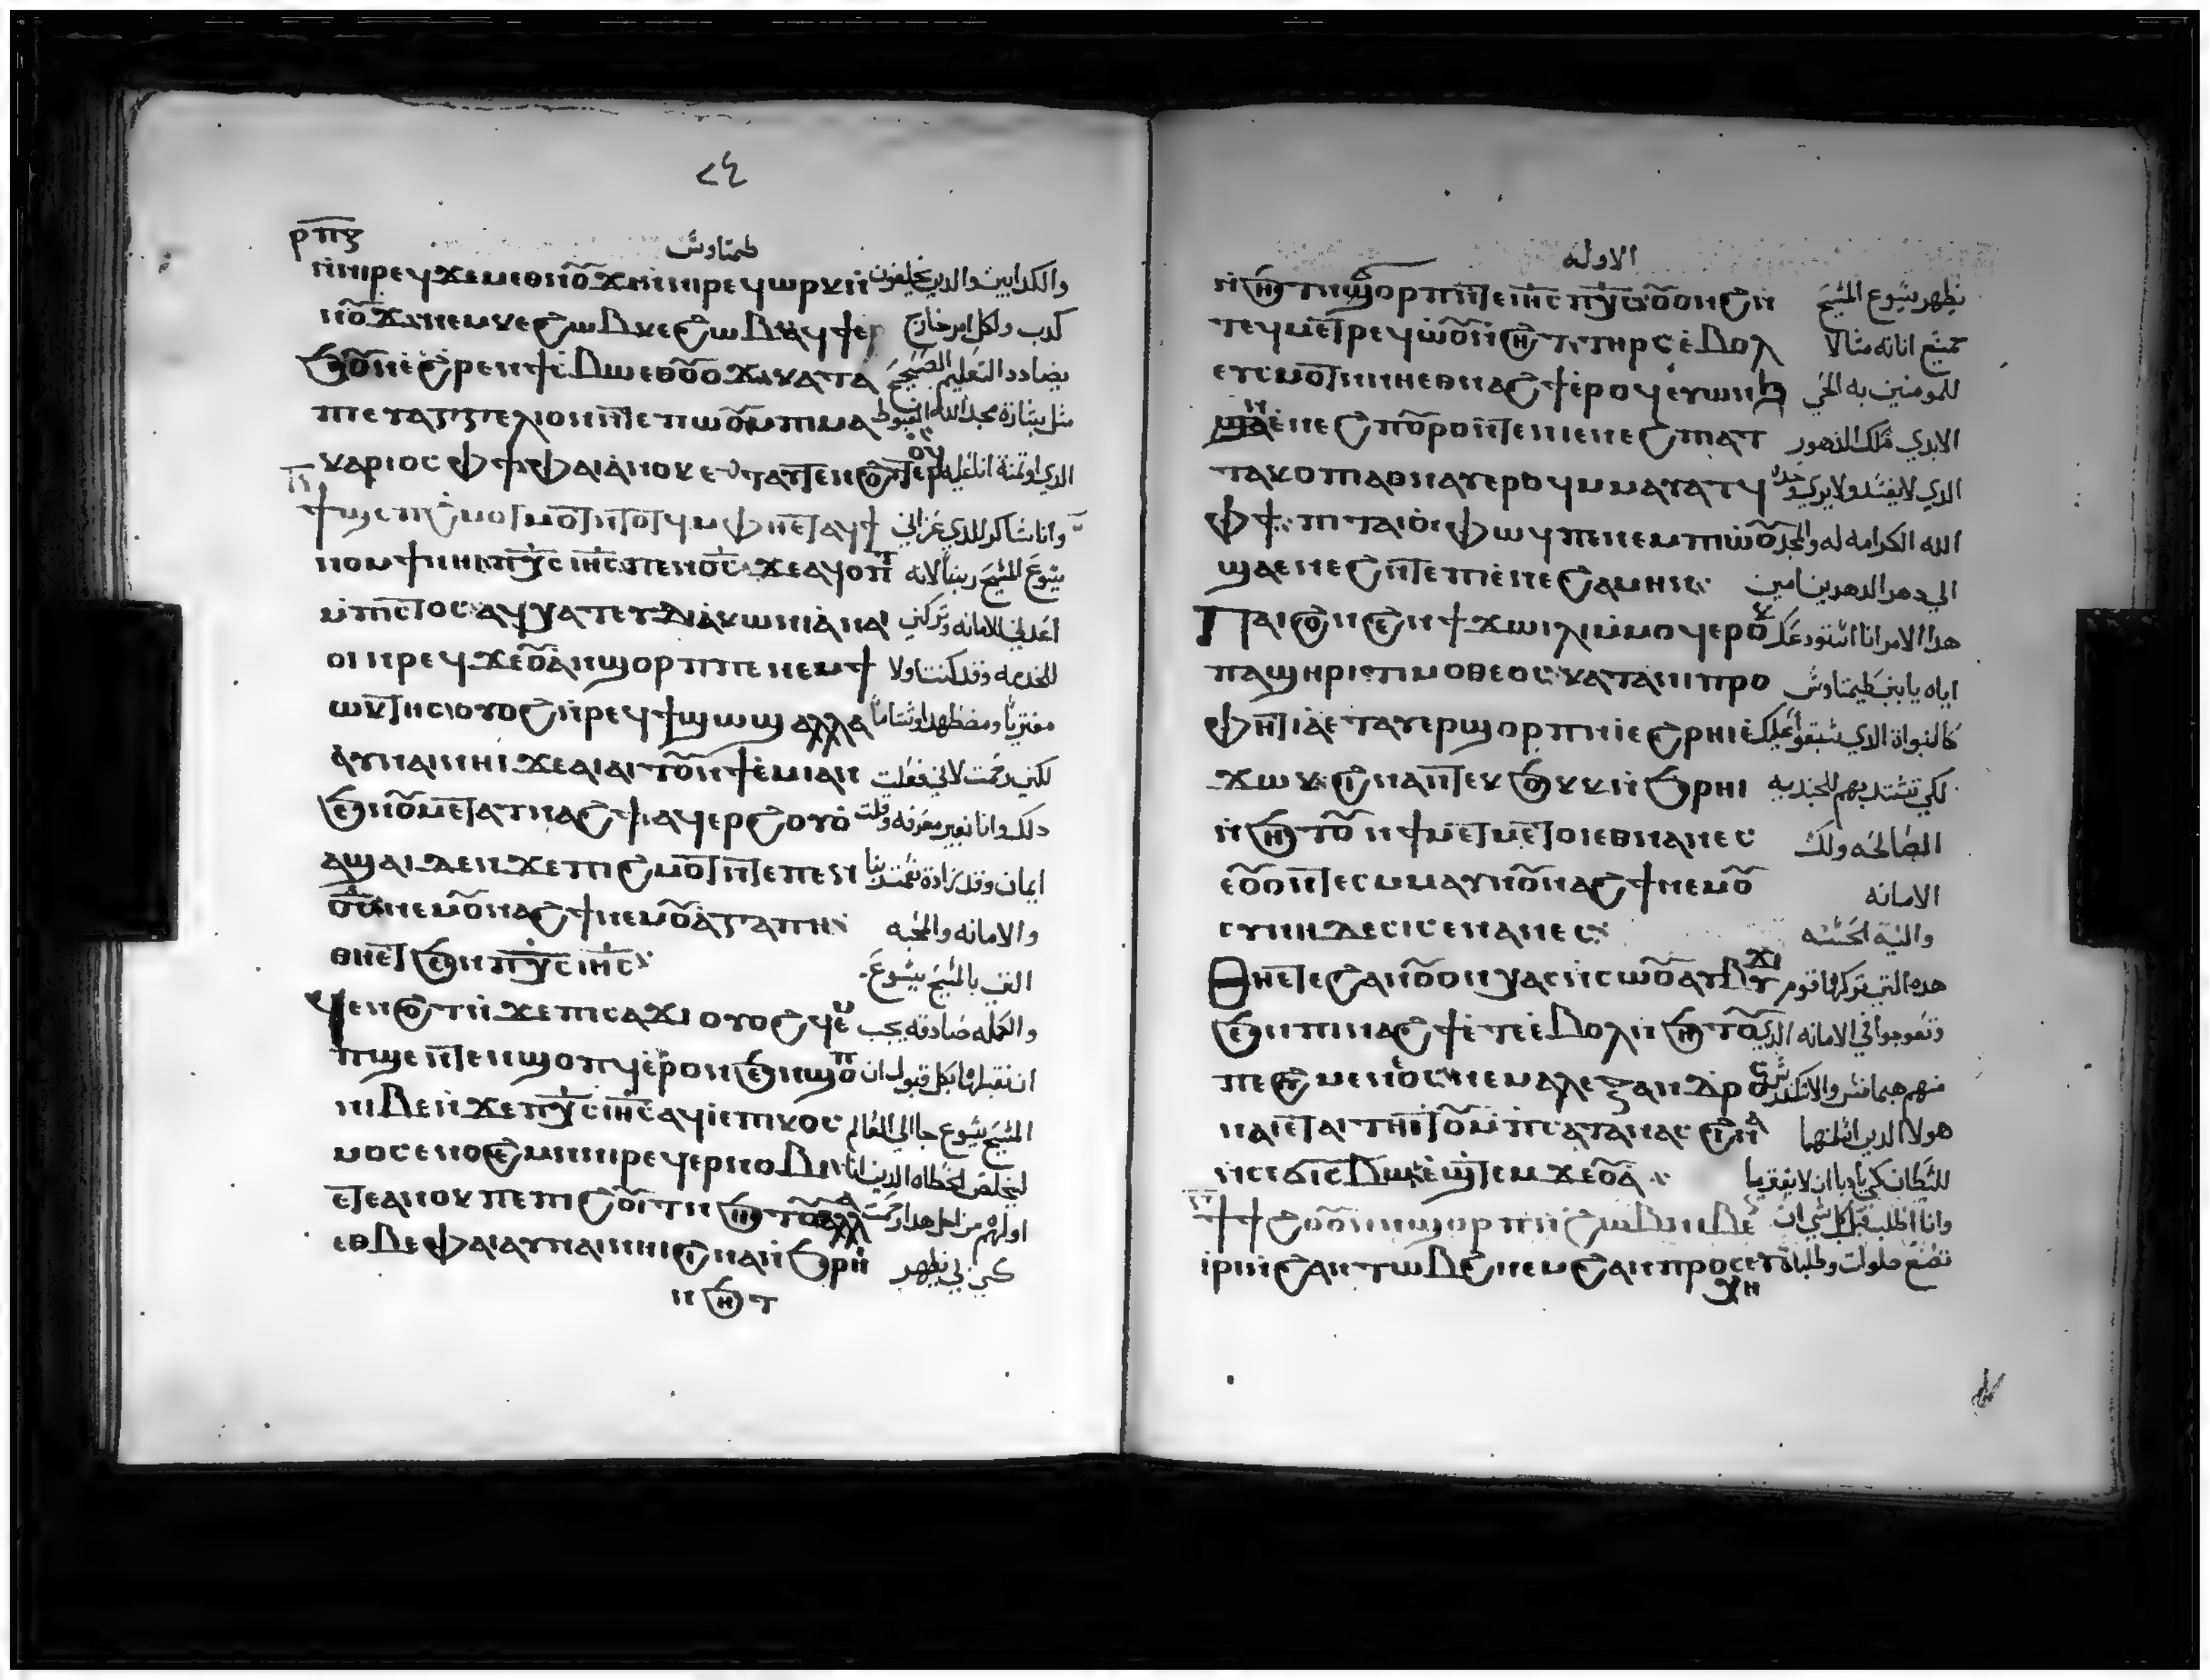 ٢٤
ⲣⲡⲍ
طيماتاوس
ⲛ̀ⲛⲓⲣⲉϥϫⲉⲙⲉⲑⲛⲟⲩϫ ⲛ̀ⲛⲓⲣⲉϥⲱⲣⲕ ⲛ̀ والكدابين والدين يحلفون
ⲛⲟⲩϫ ⲛⲉⲙ ⲕⲉϩⲱⲃ ⲕⲉϩⲱⲃ ⲁϥϯ ⲉ كدب ولكل امر خارج
ϧⲟⲩⲛ ⲉ̀ϩⲣⲉⲛ ϯⲥⲃⲱ ⲉⲑⲟⲩⲟϫ ⲕⲁⲧⲁ يضادد التعليم الصحيح
ⲡⲉⲩⲁⲅⲅⲉⲗⲓⲟⲛ ⲛ̀ⲧⲉ ⲡⲱⲟⲩ ⲙ̀ⲡⲓⲙⲁ مثل بشارة مجد الله المغبوط
ⲕⲁⲣⲓⲟⲥ ⲫϯ ⲫⲁⲓ ⲁ̀ⲛⲟⲕ ⲉⲧⲁⲩⲧⲉⲛϩⲟⲩⲧ ⲉⲣⲟϥ الدي اوتمنة انا عليه
ϯϣⲉⲡϩⲙⲟⲧ ⲛ̀ⲧⲟⲧϥ ⲙ̀ⲫⲏ ⲉⲧⲁϥϯ وانا شاكر للدي عزاني
ⲛⲟⲙϯ ⲛⲏⲓ ⲡⲭ̅ⲥ̅ ⲓⲏ̅ⲥ̅ ⲡⲉⲛⲟ̅ⲥ̅ ϫⲉ ⲁϥⲟⲡⲧ يسوع المسيح ربنا لانه
ⲙ̀ⲡⲓⲥⲧⲟⲥ ⲁϥⲭⲁⲧ ⲉⲩⲇⲓⲁⲕⲱⲛⲓⲁ ⲛⲁⲓ اعدني للامانه وتركني
ⲟⲓ ⲛ̀ⲣⲉϥϫⲉⲟⲩⲁ ⲛ̀ϣⲟⲣⲡ ⲡⲉ ⲛⲉⲙ ϯ للخدمه وقد كنت اولا
ⲱⲕⲧⲏⲥ ⲟⲩⲟϩ ⲛ̀ⲣⲉϥϯϣⲱϣ ⲁⲗⲗⲁ مفتريا ومضطهدا وشتاما
ⲁⲩⲛⲁⲓ ⲛⲏⲓ ϫⲉ ⲁⲓⲁⲓⲧⲟⲩ ⲛ̀ϯⲉ̀ⲙⲓ ⲁⲛ لكني رحمت لاني فعلت
ϧⲉⲛ ⲟⲩⲙⲉⲧⲁⲧⲛⲁϩϯ ⲁϥⲉⲣϩⲟⲩⲟ̀ دلك وانا بغير معرفه وقلت
ⲁϣⲁⲓ ⲇⲉ ⲛ̀ϫⲉ ⲡⲓϩⲙⲟⲧ ⲛ̀ⲧⲉ ⲡⲉⲛ ايمان وقد زادة نعمت ربنا
ⲟ̅ⲥ̅ ⲛⲉⲙ ⲟⲩⲛⲁϩϯ ⲛⲉⲙ ⲟⲩⲁ̀ⲅⲁⲡⲏ والامانه والمحبه
ⲑⲏ ⲉⲧϧⲉⲛ ⲡⲭ̅ⲥ̅ ⲓⲏ̅ⲥ̅ التي بالمسيح يسوع
ϥⲉⲛϩⲟⲧ ⲛ̀ϫⲉ ⲡⲓⲥⲁϫⲓ ⲟⲩⲟϩ ϥⲉ̀ⲙ والكلمه صادقه يجب
ⲡϣⲉ ⲛ̀ⲧⲉⲛϣⲟⲡϥ ⲉ̀ⲣⲟⲛ ϧⲉⲛ ϣⲟⲡ ان نقبلها بكل قبول ان
ⲛⲓⲃⲉⲛ ϫⲉ ⲡⲭ̅ⲥ̅ ⲓⲏ̅ⲥ̅ ⲁϥⲓ̀ ⲉ̀ⲡⲓⲕⲟⲥ المسيح يسوع جا الى العالم
ⲙⲟⲥ ⲉ̀ⲛⲟϩⲉⲙ ⲛ̀ⲛⲓⲣⲉϥⲉⲣⲛⲟⲃⲓ ليخلص الخطاه الدين انا
ⲉ̀ⲧⲉ ⲁⲛⲟⲕ ⲡⲉ ⲡⲓϩⲟⲩⲓⲧ ⲛ̀ϧⲏⲧⲟⲩ ⲁⲗⲗⲁ اولهم من اجل هدا رحمت
ⲉⲑⲃⲉ ⲫⲁⲓ ⲁⲩⲛⲁⲓ ⲛⲏⲓ ϩⲓⲛⲁ ⲛ̀ϧⲣⲏⲓ كي في يظهر
ⲛ̀ϧⲏⲧ
الاوله
ⲛ̀ϧⲏⲧ ⲛ̀ϣⲟⲣⲡ ⲛ̀ⲧⲉ ⲓⲏ̅ⲥ̅ ⲡⲭ̅ⲥ̅ ⲟⲩⲱⲛϩ ⲛ̀ يظهر يسوع المسيح
ⲧⲉϥⲙⲉⲧⲣⲉϥⲱⲟⲩⲛ̀ϩⲏⲧ ⲧⲏⲣⲥ ⲉ̀ⲃⲟⲗ
ⲉⲩⲥⲙⲟⲧ ⲛ̀ⲛⲏ ⲉⲑⲛⲁϩϯ ⲉ̀ⲣⲟϥ ⲉⲩⲱⲛϧ للمومنين به الحي
ⲛ̀ϣⲁⲉ̀ⲛⲉϩ ⲡⲟⲩⲣⲟ ⲛ̀ⲧⲉ ⲛⲓⲉ̀ⲛⲉϩ ⲡⲓⲁⲧ الابدي ملك الدهور
ⲧⲁⲕⲟ ⲡⲓⲁⲑⲛⲁⲩ ⲉⲣⲟϥ ⲙ̀ⲙⲁⲩⲁⲧϥ الدي لا يفسد ولا يرى وحده
ⲫϯ ⲡⲓⲧⲁⲓⲟ̀ ⲫⲱϥ ⲡⲉ ⲛⲉⲙ ⲡⲓⲱ̀ⲟⲩ الله الكرامه له والمجد
ϣⲁ ⲉⲛⲉϩ ⲛ̀ⲧⲉ ⲡⲓⲉ̀ⲛⲉϩ ⲁⲙⲏⲛ الي دهر الدهرين امين
ⲡⲁⲓϩⲟⲛϩⲉⲛ ϯⲭⲱ ⲙ̀ⲙⲟϥ ⲉⲣⲟⲕ هدا الامر انا استودعك
ⲡⲁϣⲏⲣⲓ ⲧⲓⲙⲟⲑⲉⲟⲥ ⲕⲁⲧⲁ ⲛⲓⲡⲣⲟ اياه يا بني طيماتاوس
ⲫⲏⲧⲓⲁ̀ ⲉⲧⲁⲩⲉⲣϣⲟⲣⲡ ⲛ̀ⲓ̀ ⲉ̀ϩⲣⲏⲓ ⲉ̀ كالنبواة الدي سبقوا عليك
ϫⲱⲕ ϩⲓⲛⲁ ⲛ̀ⲧⲉⲕϧⲟⲕⲕ ⲛ̀ϧⲣⲏⲓ لكي تشتد بهم للجنديه
ⲛ̀ϧⲏⲧⲟⲩ ⲛ̀ϯⲙⲉⲧⲙⲁⲧⲟⲓ ⲉⲑⲛⲁⲛⲉⲥ الصالحه ولك
ⲉⲟⲩⲟⲛⲧⲉⲕ ⲙ̀ⲙⲁⲩ ⲛ̀ⲟⲩⲛⲁϩϯ ⲛⲉⲙ ⲟⲩ الامانه
ⲥⲩⲛⲏⲇⲉⲥⲓⲥ ⲉⲛⲁⲛⲉⲥ والنية الحسنه
ⲑⲏ ⲉⲧⲉ ϩⲁⲛⲟⲩⲟⲛ ⲭⲁⲥ ⲛ̀ⲥⲱⲟⲩ ⲁⲩϭⲓ هده التي تركها قوم
ϧⲉⲛ ⲡⲓⲛⲁϩϯ ⲉ̀ⲧⲉ ⲉ̀ⲃⲟⲗ ⲛ̀ϧⲏⲧⲟⲩ
ⲡⲉ ϩⲩⲙⲉⲛⲉⲟⲥ ⲛⲉⲙ ⲁⲗⲉⲝⲁⲛⲇⲣⲟⲥ منهم هيمانس والاسكندرس
ⲛⲁⲓ ⲉⲧⲁⲓⲧⲏⲓⲧⲟⲩ ⲙ̀ⲡⲥⲁⲧⲁⲛⲁⲥ ϩⲓⲛⲁ هولا الدين اسلمتهما
ⲛ̀ⲥⲉϭⲓⲥⲃⲱ ⲉ̀ϣⲧⲉⲙϫⲉⲟⲩⲁ للشيطان كي يادبا ان لا يفتريا
ϯϯϩⲟ ⲟⲩⲛ ⲛ̀ϣⲟⲣⲡ ⲛ̀ϩⲱⲃ ⲛⲓⲃⲉⲛ وانا اطلب قبل كل شي ان
ⲓ̀ⲣⲓ ⲛ̀ϩⲁⲛⲧⲱⲃϩ ⲛⲉⲙ ϩⲁⲛⲡⲣⲟⲥⲉⲩ تصنع صلوات وطلبات
ⲭⲏ